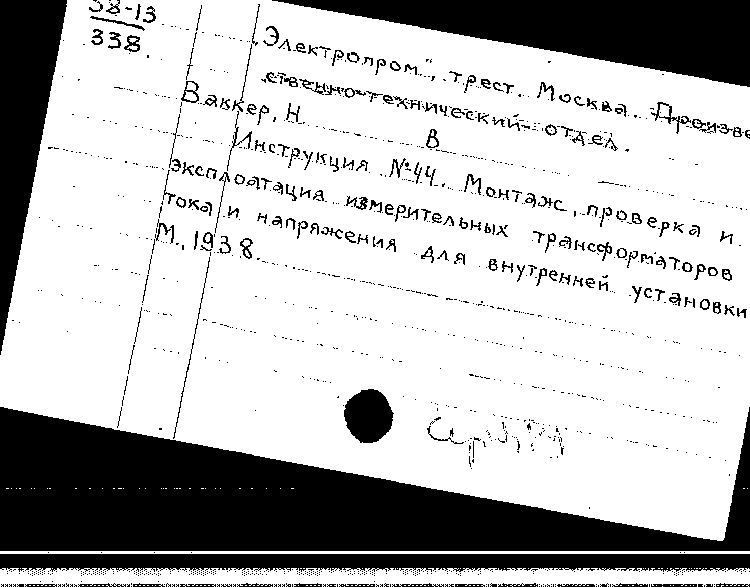 38-13
338.
„Электропром", трест. Москва. Произве
ственно-технический отдел.
Ваккер, Н.
В
Инструкция №44. Монтаж, проверка и
эксплоатация измерительных трансформаторов
тока и напряжения для внутренней установки
М., 1938.